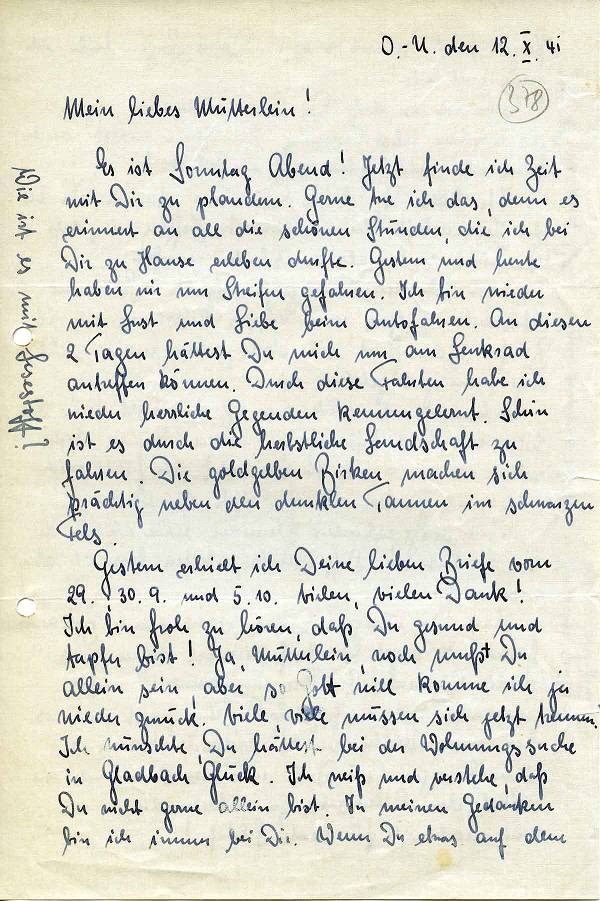 O.-U. den 12. X. 41
378
Mein liebes Mütterlein!
Es ist Sonntag Abend! Jetzt finde ich Zeit
mit Dir zu plaudern. Gerne tue ich das, denn es
erinnert an all die schönen Stunden, die ich bei
Dir zu Hause erleben durfte. Gestern und heute
haben wir nun Streifen gefahren. Ich bin wieder
mit Lust und Liebe beim Autofahren. An diesen
2 Tagen hättest Du mich nur am Lenkrad
antreffen können. Durch diese Fahrten habe ich
wieder herrliche Gegenden kennengelernt. Schön
ist es durch die herbstliche Landschaft zu
fahren. Die goldgelben Birken machen sich
prächtig neben den dunklen Tannen im schwarzen
Fels.
Gestern erhielt ich Deine lieben Briefe vom
29., 30.9. und 5.10. vielen, vielen Dank!
Ich bin froh zu hören, daß Du gesund und
tapfer bist! Ja, Mütterlein, noch mußt Du
allein sein aber so Gott will komme ich ja
wieder zurück. Viele, viele müssen sich jetzt trennen.
Ich wünschte, Du hättest bei der Wohnungssuche
in Gladbach Glück. Ich weiß und verstehe, daß
Du nicht gerne allein bist. In meinen Gedanken
bin ich immer bei Dir. Wenn Du etwas auf dem
Wie ist es mit Lesestoff?